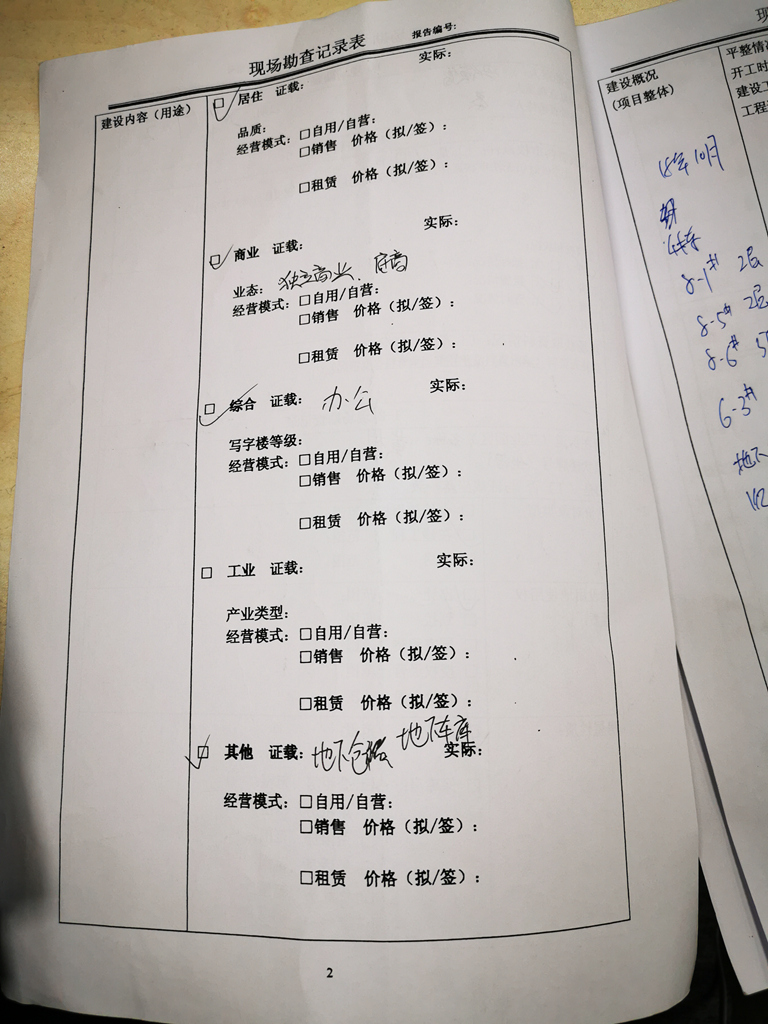 现场勘查记录表
报告编号:
建设内容（用途）
□ 居住 证载: 实际:
品质:
经营模式: □自用/自营:
□销售 价格（拟/签）:
□租赁 价格（拟/签）:
□ 商业 证载: 实际:
业态: 独立商业、底商
经营模式: □自用/自营:
□销售 价格（拟/签）:
□租赁 价格（拟/签）:
□ 综合 证载: 办公 实际:
写字楼等级:
经营模式: □自用/自营:
□销售 价格（拟/签）:
□租赁 价格（拟/签）:
□ 工业 证载: 实际:
产业类型:
经营模式: □自用/自营:
□销售 价格（拟/签）:
□租赁 价格（拟/签）:
□ 其他 证载: 地下仓 地下车库 实际:
经营模式: □自用/自营:
□销售 价格（拟/签）:
□租赁 价格（拟/签）:
2
建设概况
（项目整体）
平整情
开工时
建设工
工程
18年10月
8-1# 2层
8-5# 2层
8-6# 5
6-3#
地下